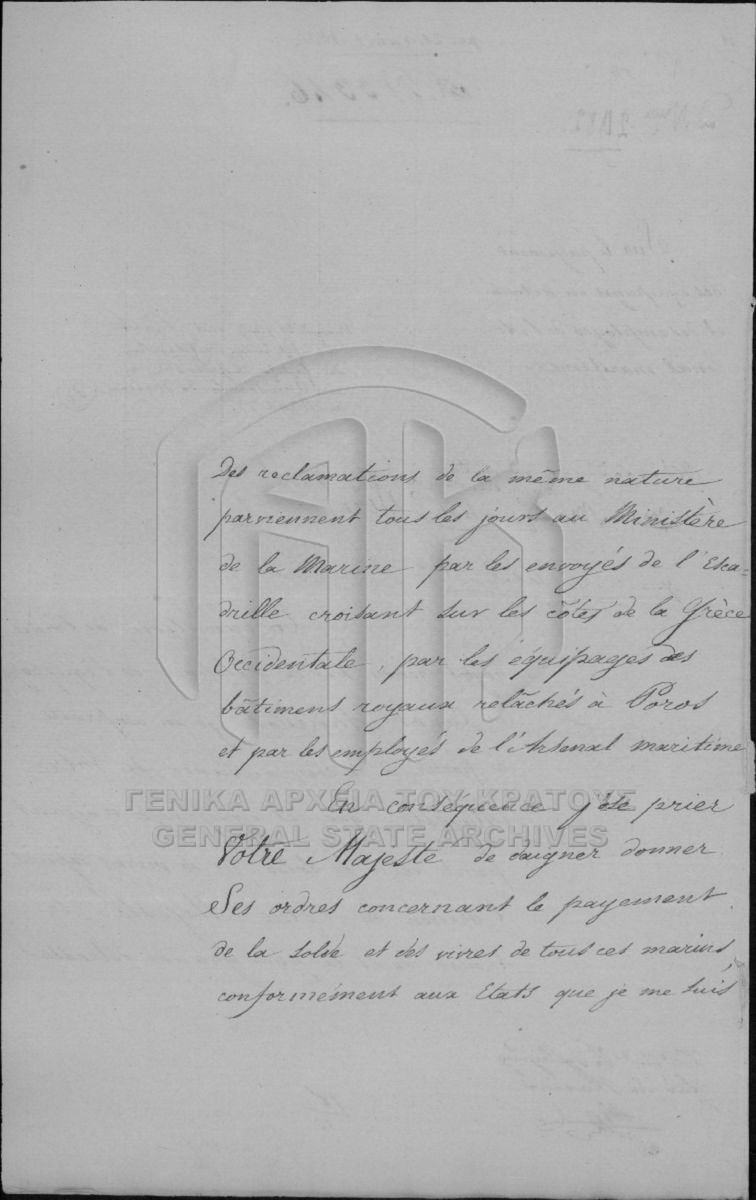 Des reclamations de la même nature
parviennent tous les jours au Ministère
de la Marine par les envoyés de l'Esca-
drille croisant sur les côtes de la Grèce
Occidentale, par les équipages des
bâtimens royaux relâchés à Poros
et par les employés de l'Arsenal maritime
ΓΕΝΙΚΑ ΑΡΧΕΙΑ ΤΟΥ ΚΡΑΤΟΥΣ
En conséquence j'ose prier
GENERAL STATE ARCHIVES
Votre Majesté de daigner donner
Ses ordres concernant le payement
de la solde et des vivres de tous ces marins,
conformément aux Etats que je me suis